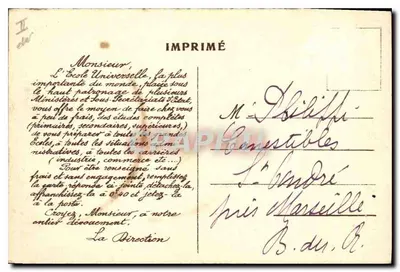 IMPRIMÉ
Monsieur,
L'École Universelle, la plus
importante du monde, placée sous
le haut patronage de plusieurs
Ministères et Sous-Secrétariats d'État,
vous offre le moyen de faire chez vous
à peu de frais, des études complètes
(primaires, secondaires, supérieures,)
de vous préparer à toutes les grandes
Écoles, à toutes les situations admi-
nistratives, à toutes les carrières
(industrie, commerce etc...)
Pour être renseigné sans
frais et sans engagement, remplissez
la carte réponse ci jointe détachez-la,
affranchissez-la à 0.40 et jetez-la
à la poste.
Croyez, Monsieur, à notre
entier dévouement.
La Direction
M
Comestibles
St
près Marseille
B. des R.